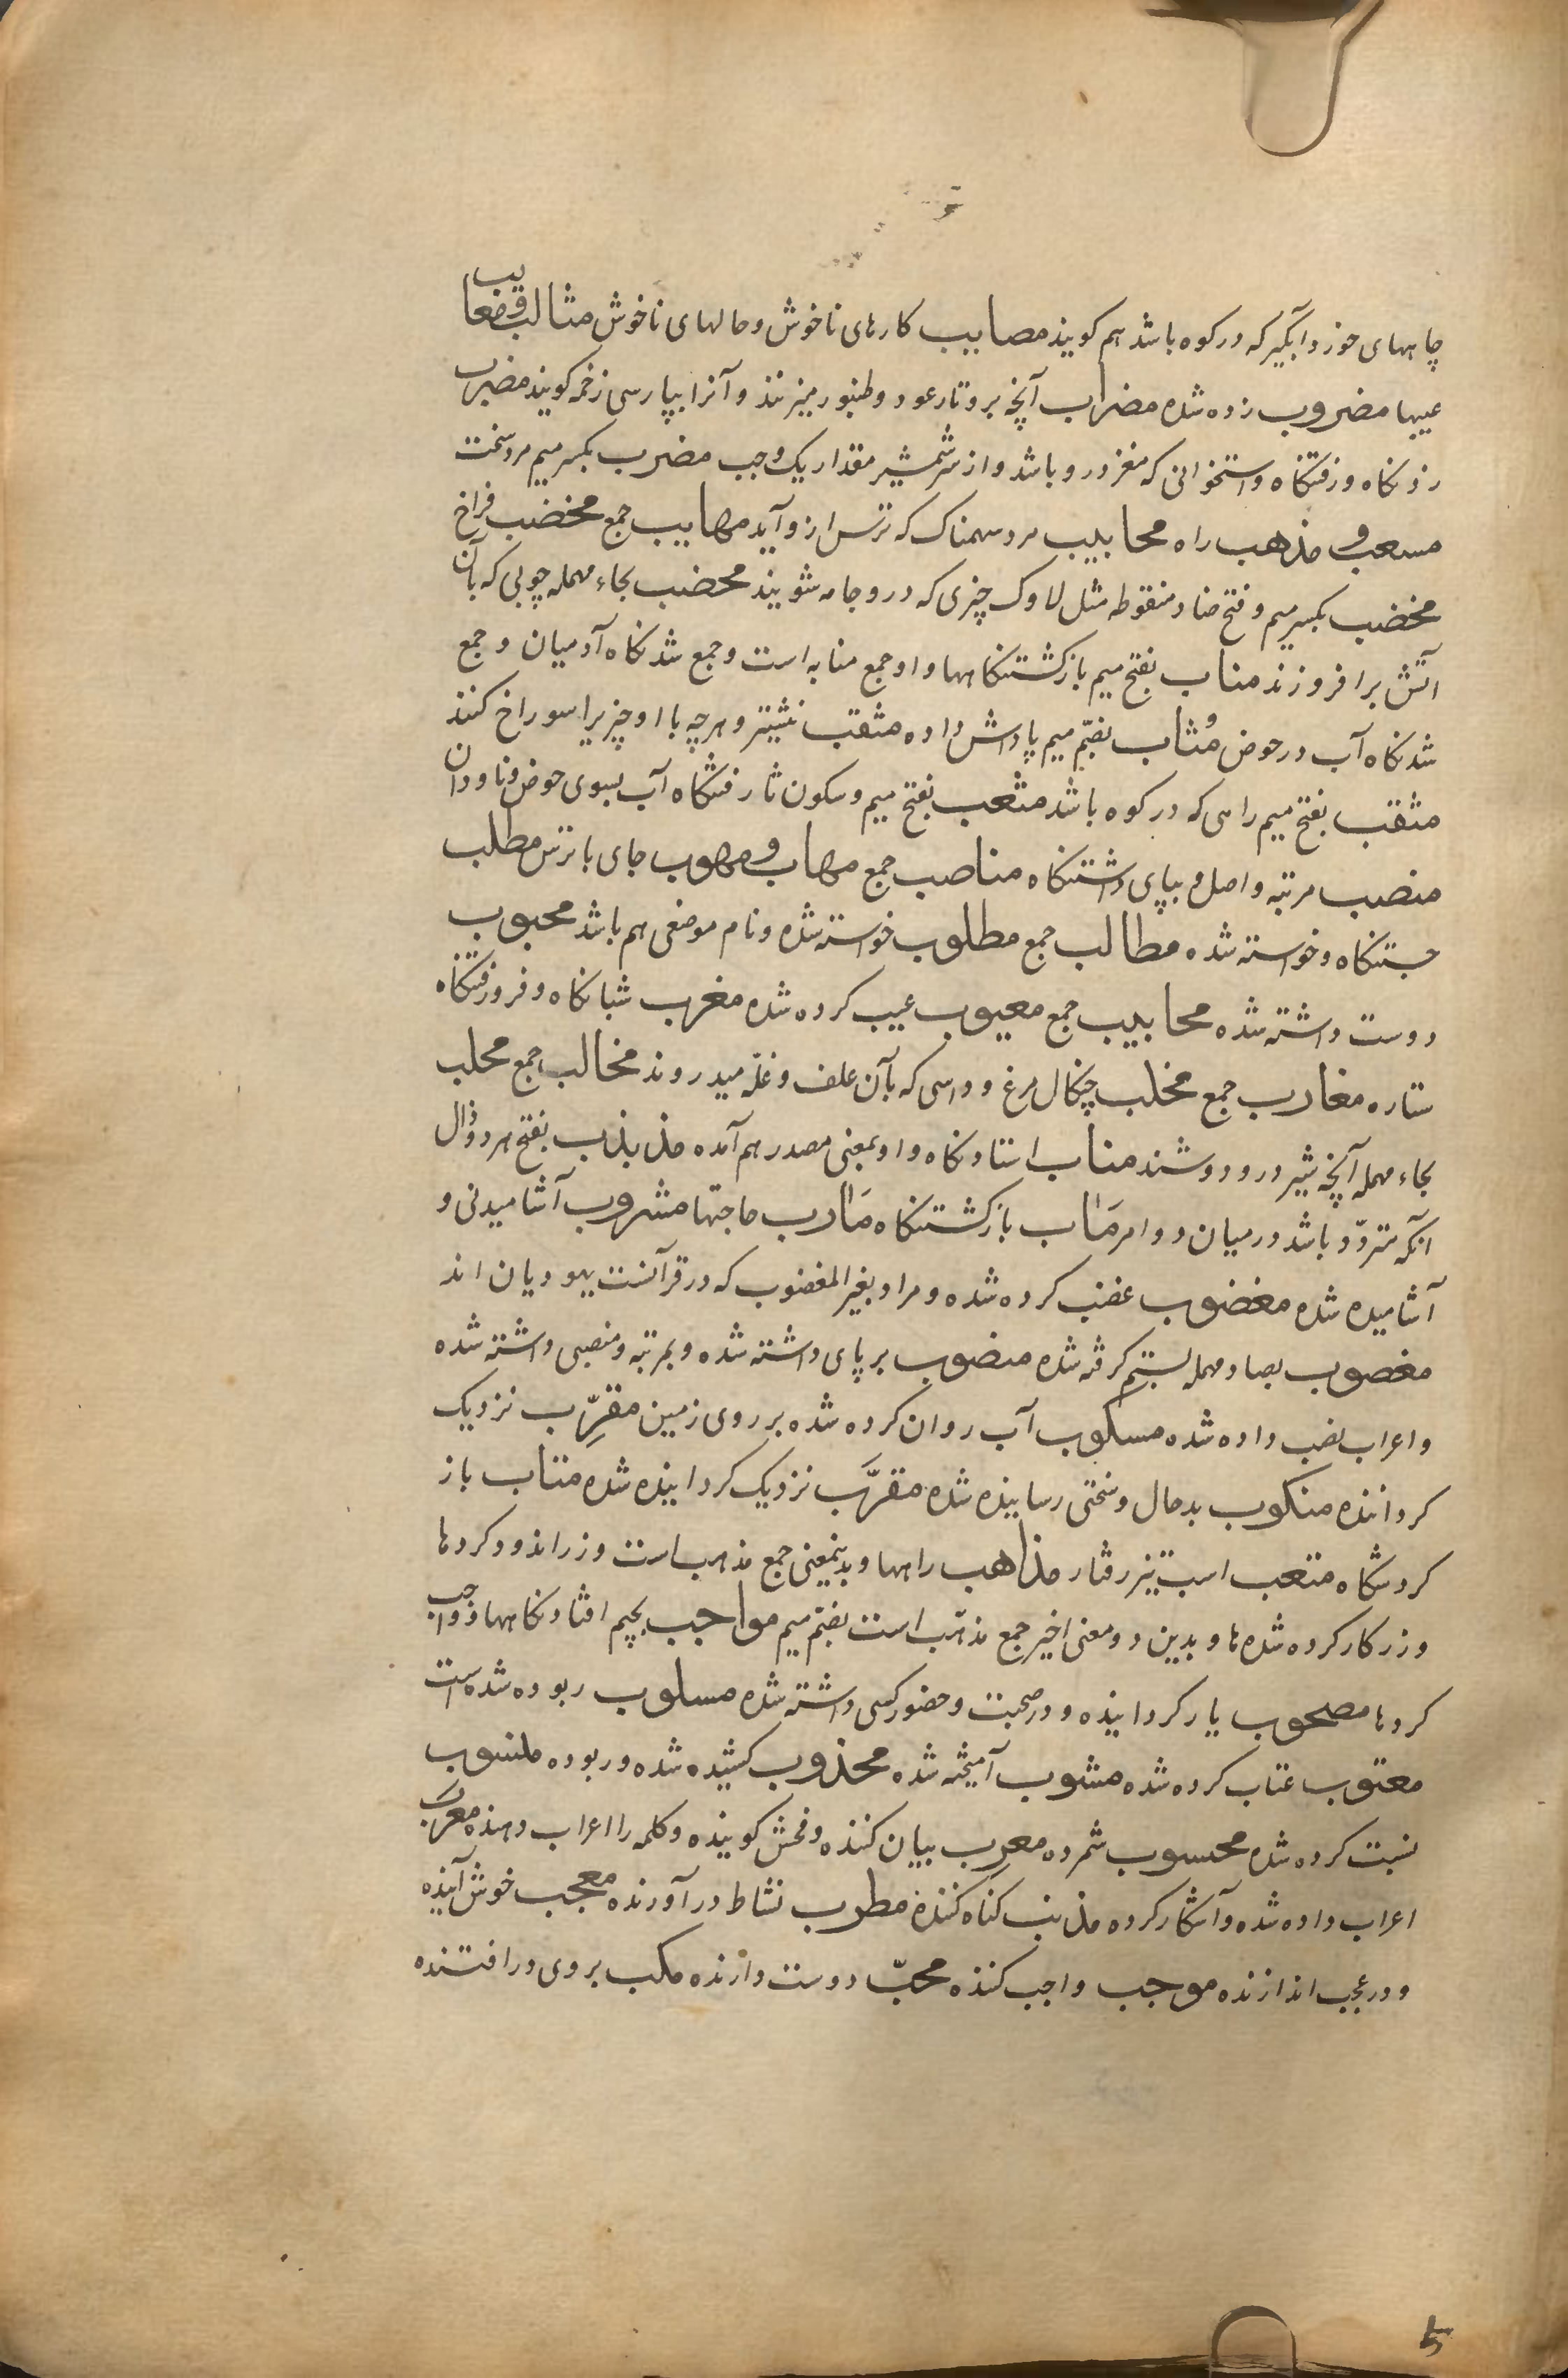 چاههای خورد و آبگیر که در کوه باشد هم کویند مصاییب کارهای ناخوش و حالهای ناخوش مثالب و معایب
عیبها مضروب زده شده مضراب آنچه بر و تار عود و طنبور میزنند و آنرا بپارسی زخمه کویند مضرب
زدنکاه و رفتنکاه و استخوانی که مغز درو باشد و از سر شمشیر مقدار یک وجب مضرب بکسر میم مرد سخت
مسعب و مذهب راه محابیب مرد سهمناک که ترس ازو آید مهابیب جمع مخضب فراخ
مخضب بکسر میم و فتح ضاد منقوطه مثل لاوک چیزی که درو جامه شویند محضب بحاء مهمله چوبی که بآن
اتش برافروزند مناب بفتح میم بازکشتنکاهها و او جمع منابه است و جمع شدنکاه آدمیان و جمع
شدنکاه آب در حوض مُثاب بضّم میم پاداش داده مثقب نشیتر و هرچه با او چیزیرا سوراخ کنند
مثقب بفتح میم راهی که در کوه باشد مثعب بفتح میم و سکون ثا رفتنکاه آب بسوی حوض و ناودان
منصب مرتبه و اصل و بپای داشتنکاه مناصب جمع مهاب و مهوب جای با ترس مطلب
جستنکاه و خواسته شده مطالب جمع مطلوب خواسته شده و نام موضعی هم باشد محبوب
دوست داشته شده محابیب جمع معیوب عیب کرده شده مغرب شبانکاه و فرورفتنکاه
ستاره مغارب جمع مخلب چنکال مرغ و داسی که بآن علف و غلّه میدروند مخالب جمع محلب
بحاء مهمله آنچه شیر درو دوشند مناب استادنکاه و او بمعنی مصدر هم آمده مذبذب بفتح هر دو ذال
انکه متردّد باشد در میان دو امر مَاٰب بازکشتنکاه مَاٰرب حاجتها مشروب آشامیدنی و
آشامیده شده مغضوب غضب کرده شده و مراد بغیر المغضوب که در قرآنست یهودیان اند
مغصوب بصاد مهمله بستم کرفته شده منصوب بر پای داشته شده و بمرتبه و منصبی داشته شده
و اعراب نصب داده شده مسکوب آب روان کرده شده بر روی زمین مقرِّب نزدیک
کرداننده منکوب بدحال و سختی رسانیده شده مقرَّب نزدیک کردانیده شده متاب باز
کردشکاه متعب اسب تیز رفتار مذاهب راهها و بدینمعنی جمع مذهب است و زراندود کردها
و زر کار کرده شده ها و بدین دو معنی اخیر جمع مذهّب است بضّم میم مواجب بجیم افتادنکاهها و واجب
کردها مصحوب یار کردانیده و در صحبت و حضور کسی داشته شده مسلوب ربوده شده است
معتوب عتاب کرده شده مشوب آمیخته شده مجذوب کشیده شده و ربوده منسوب
نسبت کرده شده محسوب شمرده معرِب بیان کننده و فحش کوینده و کلمه را اعراب دهنده معرَب
اعراب داده شده و آشکار کرده مذنب کناه کننده مطرب نشاط درآورنده معجب خوش آینده
و در عجب اندازنده موجب واجب کننده محبّ دوست دارنده مکب بر وی درافتنده